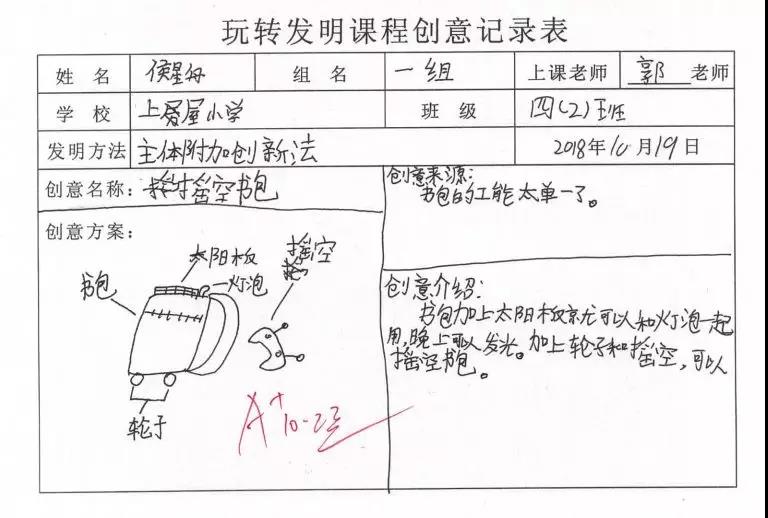 玩转发明课程创意记录表
姓 名 侯星 组 名 一组 上课老师 郭 老师
学 校 上屋小学 班 级 四(2)班
发明方法 主体附加创新法 2018年10月19日
创意名称：摇空书包
创意来源：
书包的工能太单一了。
创意方案：
太阳板
灯泡
书包
摇空
轮子
A+
创意介绍：
书包加上太阳板京尤可以和灯泡一起
用,晚上可以发光。加上轮子和摇空,可以
摇空书包。